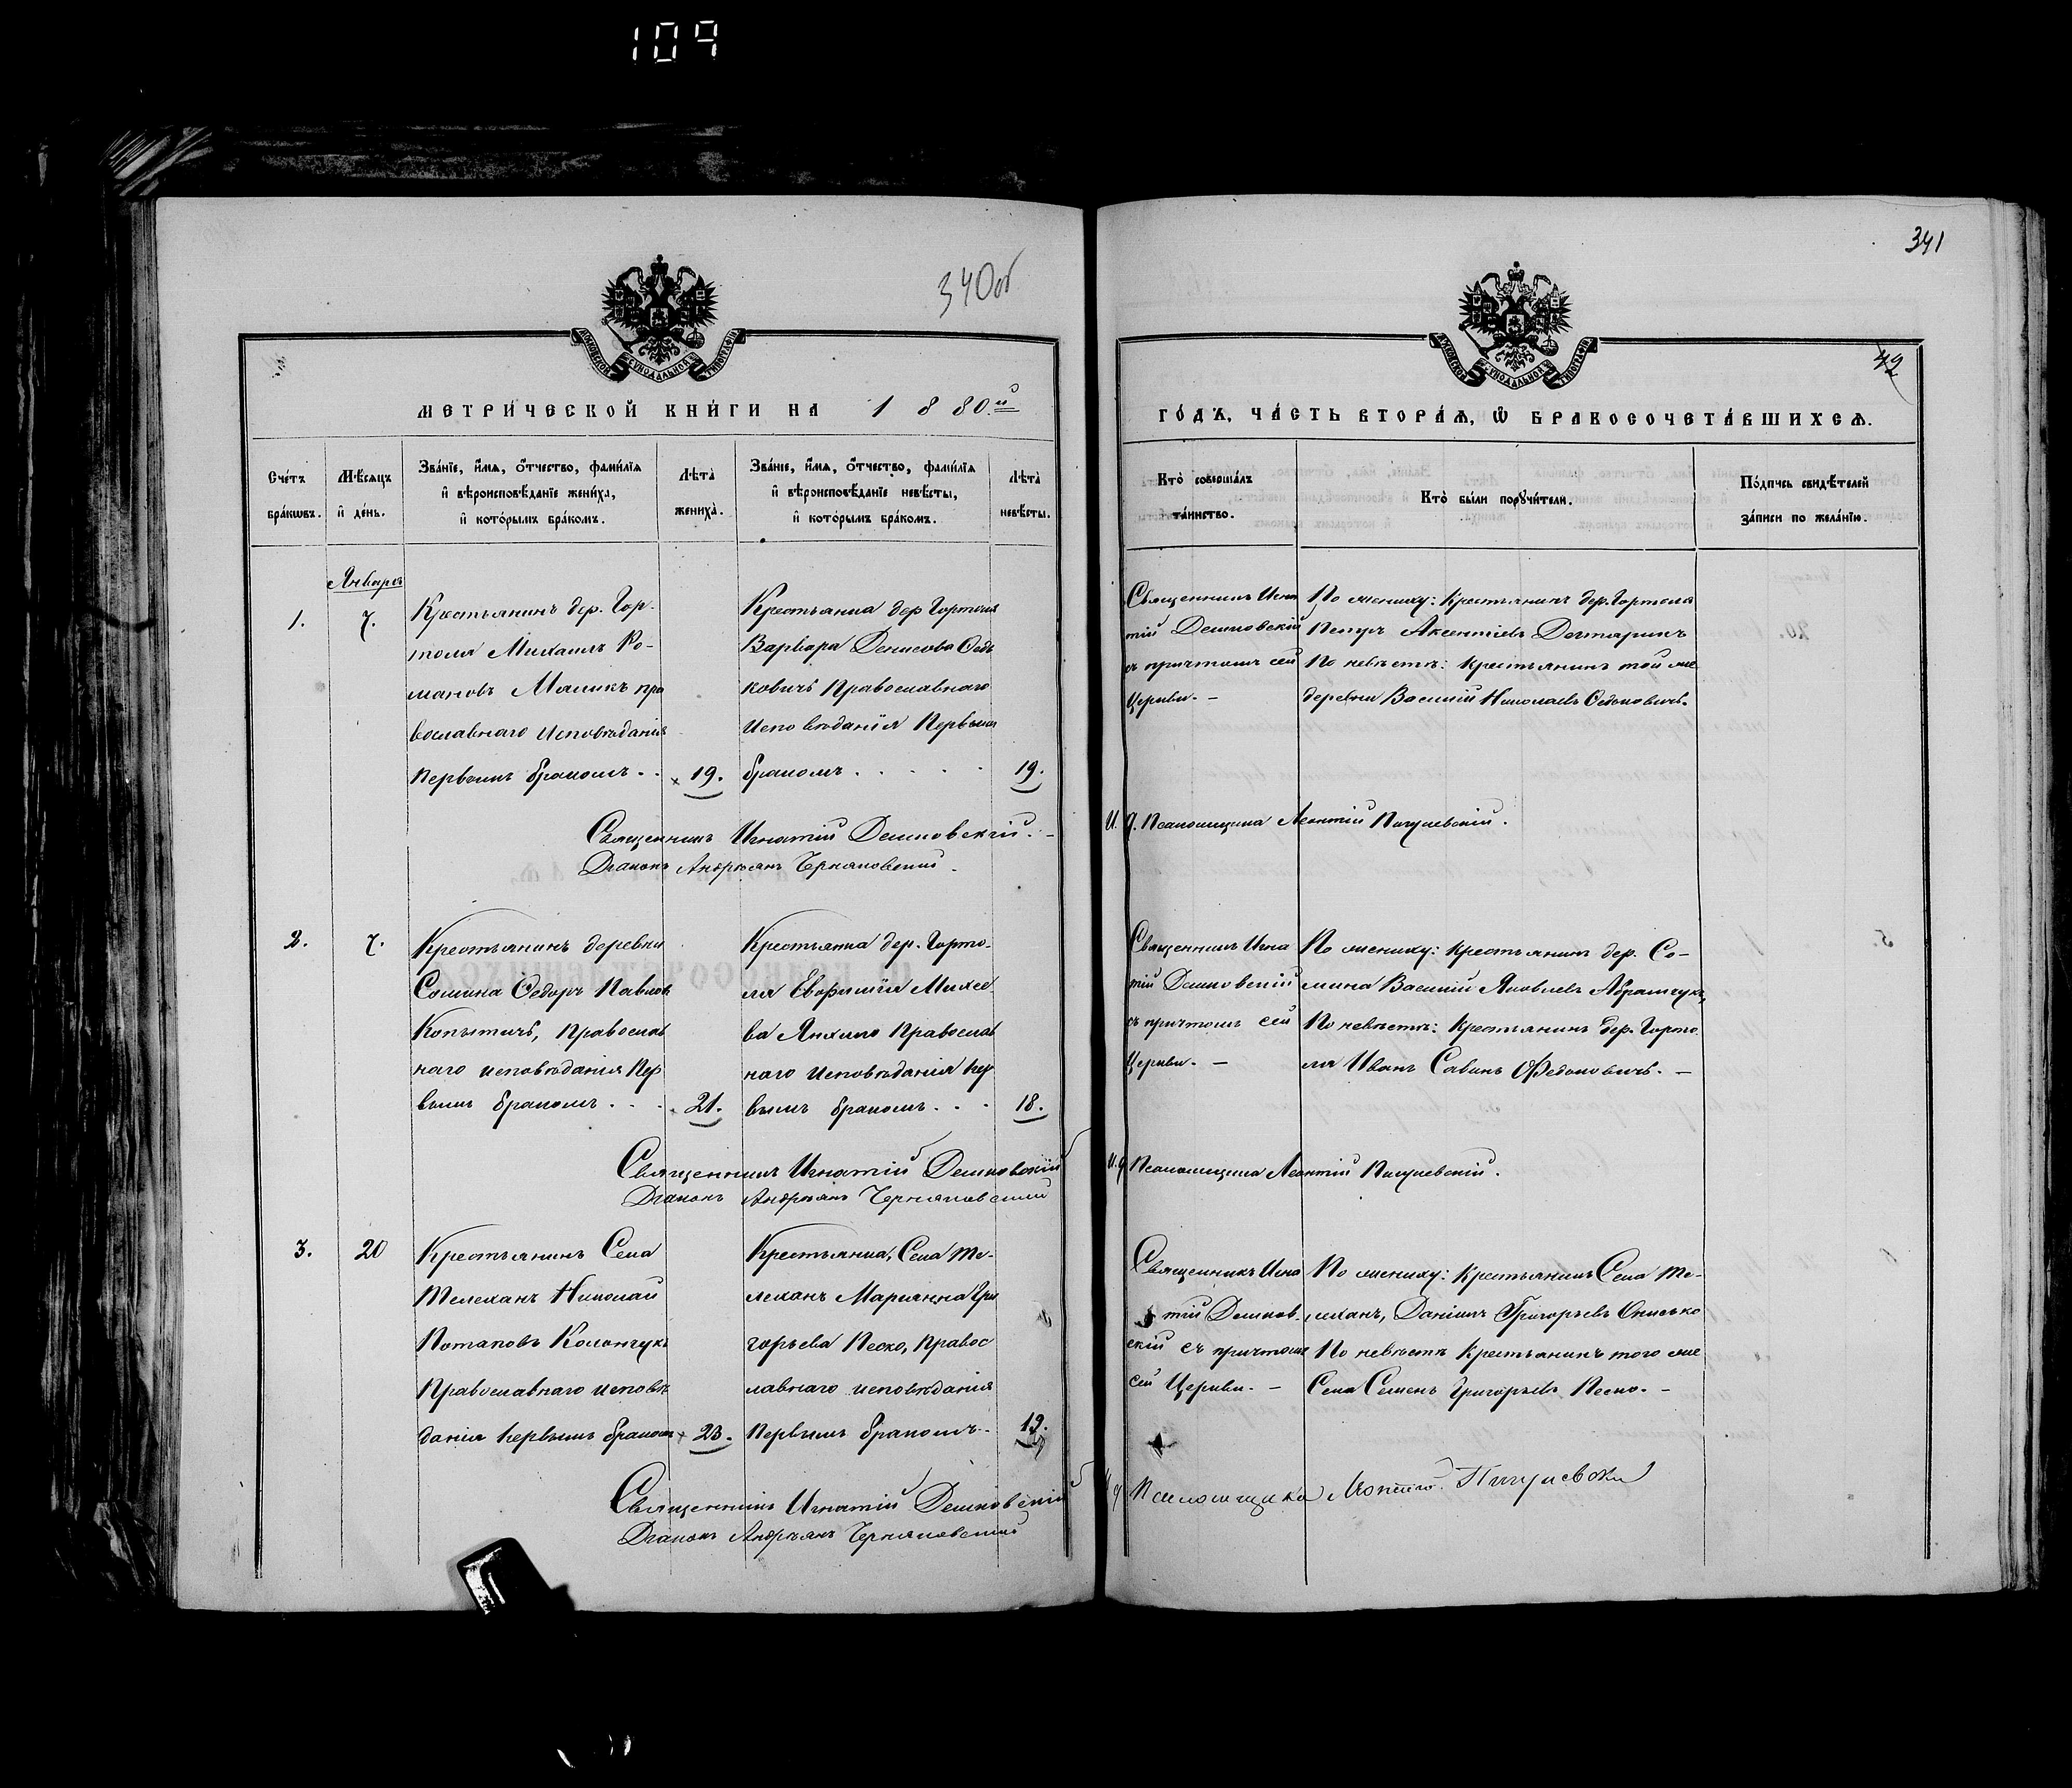 109
340об
341
42
МОСКОВСКОЙ СѴНОДАЛЬНОЙ ТИПОГРАФІИ
МЕТРИ́ЧЕСКОЙ КНИ́ГИ НА 1880.й
МОСКОВСКОЙ СѴНОДАЛЬНОЙ ТИПОГРАФІИ
ГО́ДЪ, ЧА́СТЬ ВТОРА́Ѧ, Ѽ БРАКОСОЧЕТА́ВШИХСѦ.
Сче́тъ
бра́кѡвъ.
Мѣ́сѧцъ
и҆ де́нь.
Зва́нїе, и҆́мѧ, ѻ҆́тчество, фами́лїѧ
и҆ вѣроисповѣ́данїе жениха̀,
и҆ кото́рымъ бра́комъ.
Лѣта̀
жениха̀.
Зва́нїе, и҆́мѧ, ѻ҆́тчество, фами́лїѧ
и҆ вѣроисповѣ́данїе невѣ́сты,
и҆ кото́рымъ бра́комъ.
Лѣта̀
невѣ́сты.
Кто̀ соверша́лъ
та́инство.
Кто̀ бы́ли порꙋчи́тели.
По́дпись свидѣ́телей
за́писи по жела́нїю.
Январь
1.
7.
Крестьянинъ дер. Гор-
толя Михаилъ Ро-
мановъ Маликъ пра
вославнаго исповѣданія
первымъ бракомъ . .
19.
Крестьянка дер Гортоля
Варвара Денисова Ѳедь
ковичъ Православнаго
исповѣданія Первым
бракомъ . . . . .
19.
Священникъ Игна
тій Дешковскій
съ причтомъ сей
Церкви. –
По жениху: Крестьянинъ дер. Гортоля
Петръ Аксентіевъ Дегтяринъ
По невѣстѣ: Крестьянинъ той же
деревни Василій Николаевъ Ѳедьковичъ.
Священникъ Игнатій Дешковскій. –
Діаконъ Андріанъ Черняковскій.
И. д. Псаломщика Леонтій Пигулевскій.
2.
7.
Крестьянинъ деревни
Сомина Ѳедоръ Павловъ
Копытичъ, Православ
наго исповѣданія Пер
вымъ бракомъ . . .
21.
Крестьянка дер. Горто-
ля Евфимія Михее
ва Янхило Православ
наго исповѣданія пер
вымъ бракомъ . . .
18.
Священникъ Игна
тій Дешковскій
съ причтомъ сей
Церкви. –
По жениху: Крестьянинъ дер. Со-
мина Василій Яковлевъ Абрамчукъ,
По невѣстѣ: Крестьянинъ дер. Горто
ля Иванъ Савинъ Ѳедьковичъ. –
Священникъ Игнатій Дешковскій
Діаконъ Андріанъ Черняковскій
И. д Псаломщика Леонтій Пигулевскій.
3.
20
Крестьянинъ Села
Телеханъ Николай
Потаповъ Коланчукъ
Православнаго исповѣ
данія первымъ бракомъ
23.
Крестьянка, Села Те-
леханъ Марианна Гри
горьева Песко, Правос
лавнаго исповѣданія
Первымъ бракомъ . .
19.
Священникъ Игна
тій Дешков-
скій съ причтомъ
сей Церкви. –
По жениху: Крестьянинъ Села Те-
леханъ, Даніилъ Григорьевъ Онисько
По невѣстѣ Крестьянинъ того же
Села Семенъ Григорьевъ Песко. –
Священникъ Игнатій Дешковскій
Діаконъ Андріанъ Черняковскій
Псаломщика Леонтій Пигулевскій